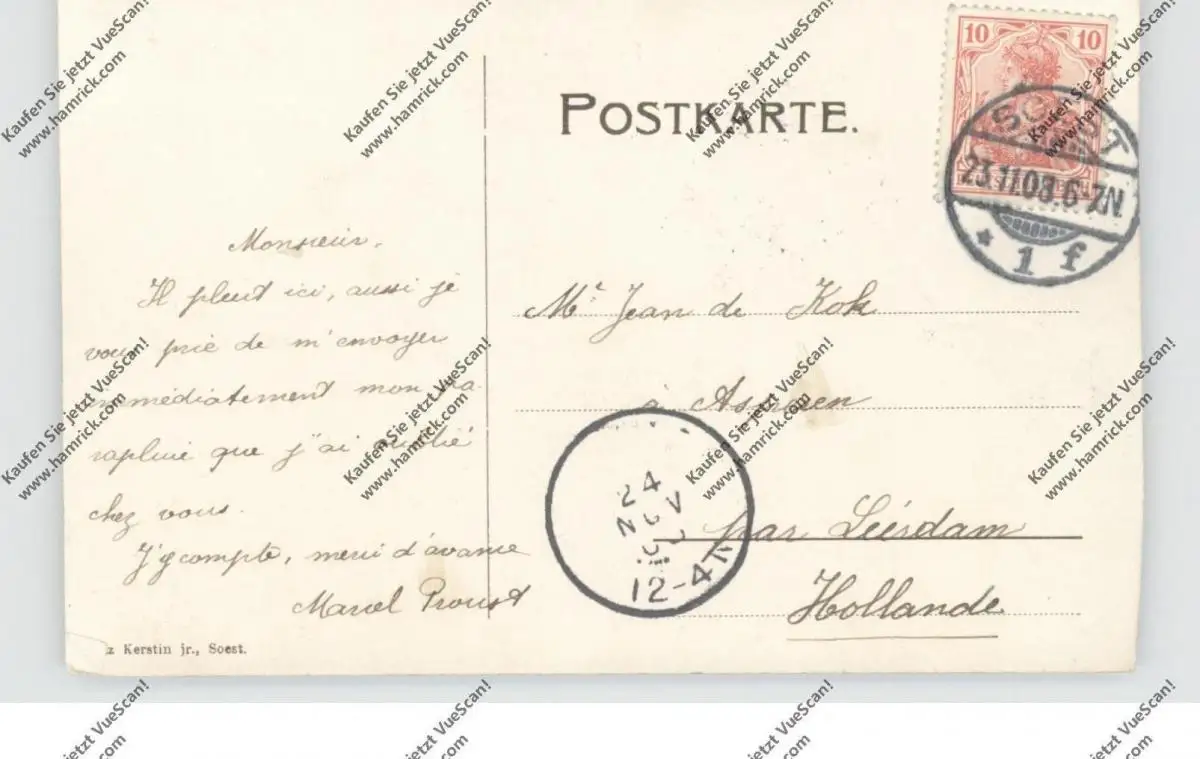 POSTKARTE.
10 10
SOEST
23.11.08.6-7N
* 1 f
Monsieur.
Il pleut ici, aussi je
vous prie de m'envoyer
immédiatement mon pa-
rapluie que j'ai oublié
chez vous.
J'y compte, merci d'avance
Marcel Proust
Mr Jean de Kok
à Asperen
par Leerdam
Hollande
24
NOV
12-4
Kerstin jr., Soest.
Kaufen Sie jetzt VueScan!
www.hamrick.com